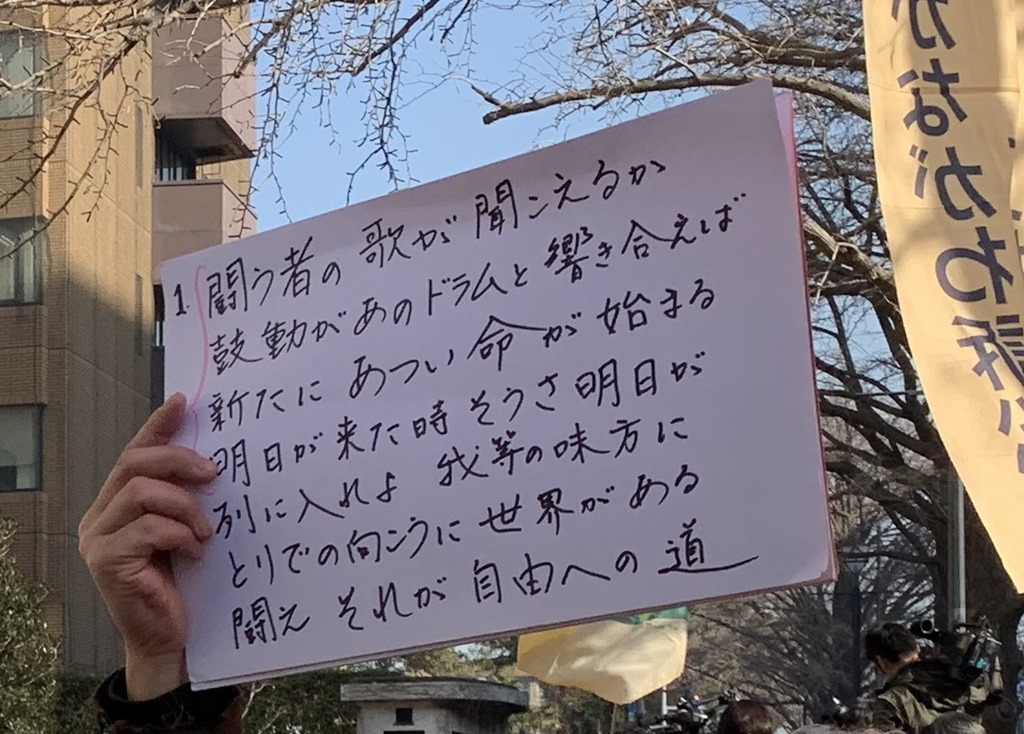 1. 闘う者の歌が聞こえるか
鼓動があのドラムと響き合えば
新たにあつい命が始まる
明日が来た時そうさ明日が
列に入れよ 我等の味方に
とりでの向こうに世界がある
闘え それが自由への道
かながわ訴